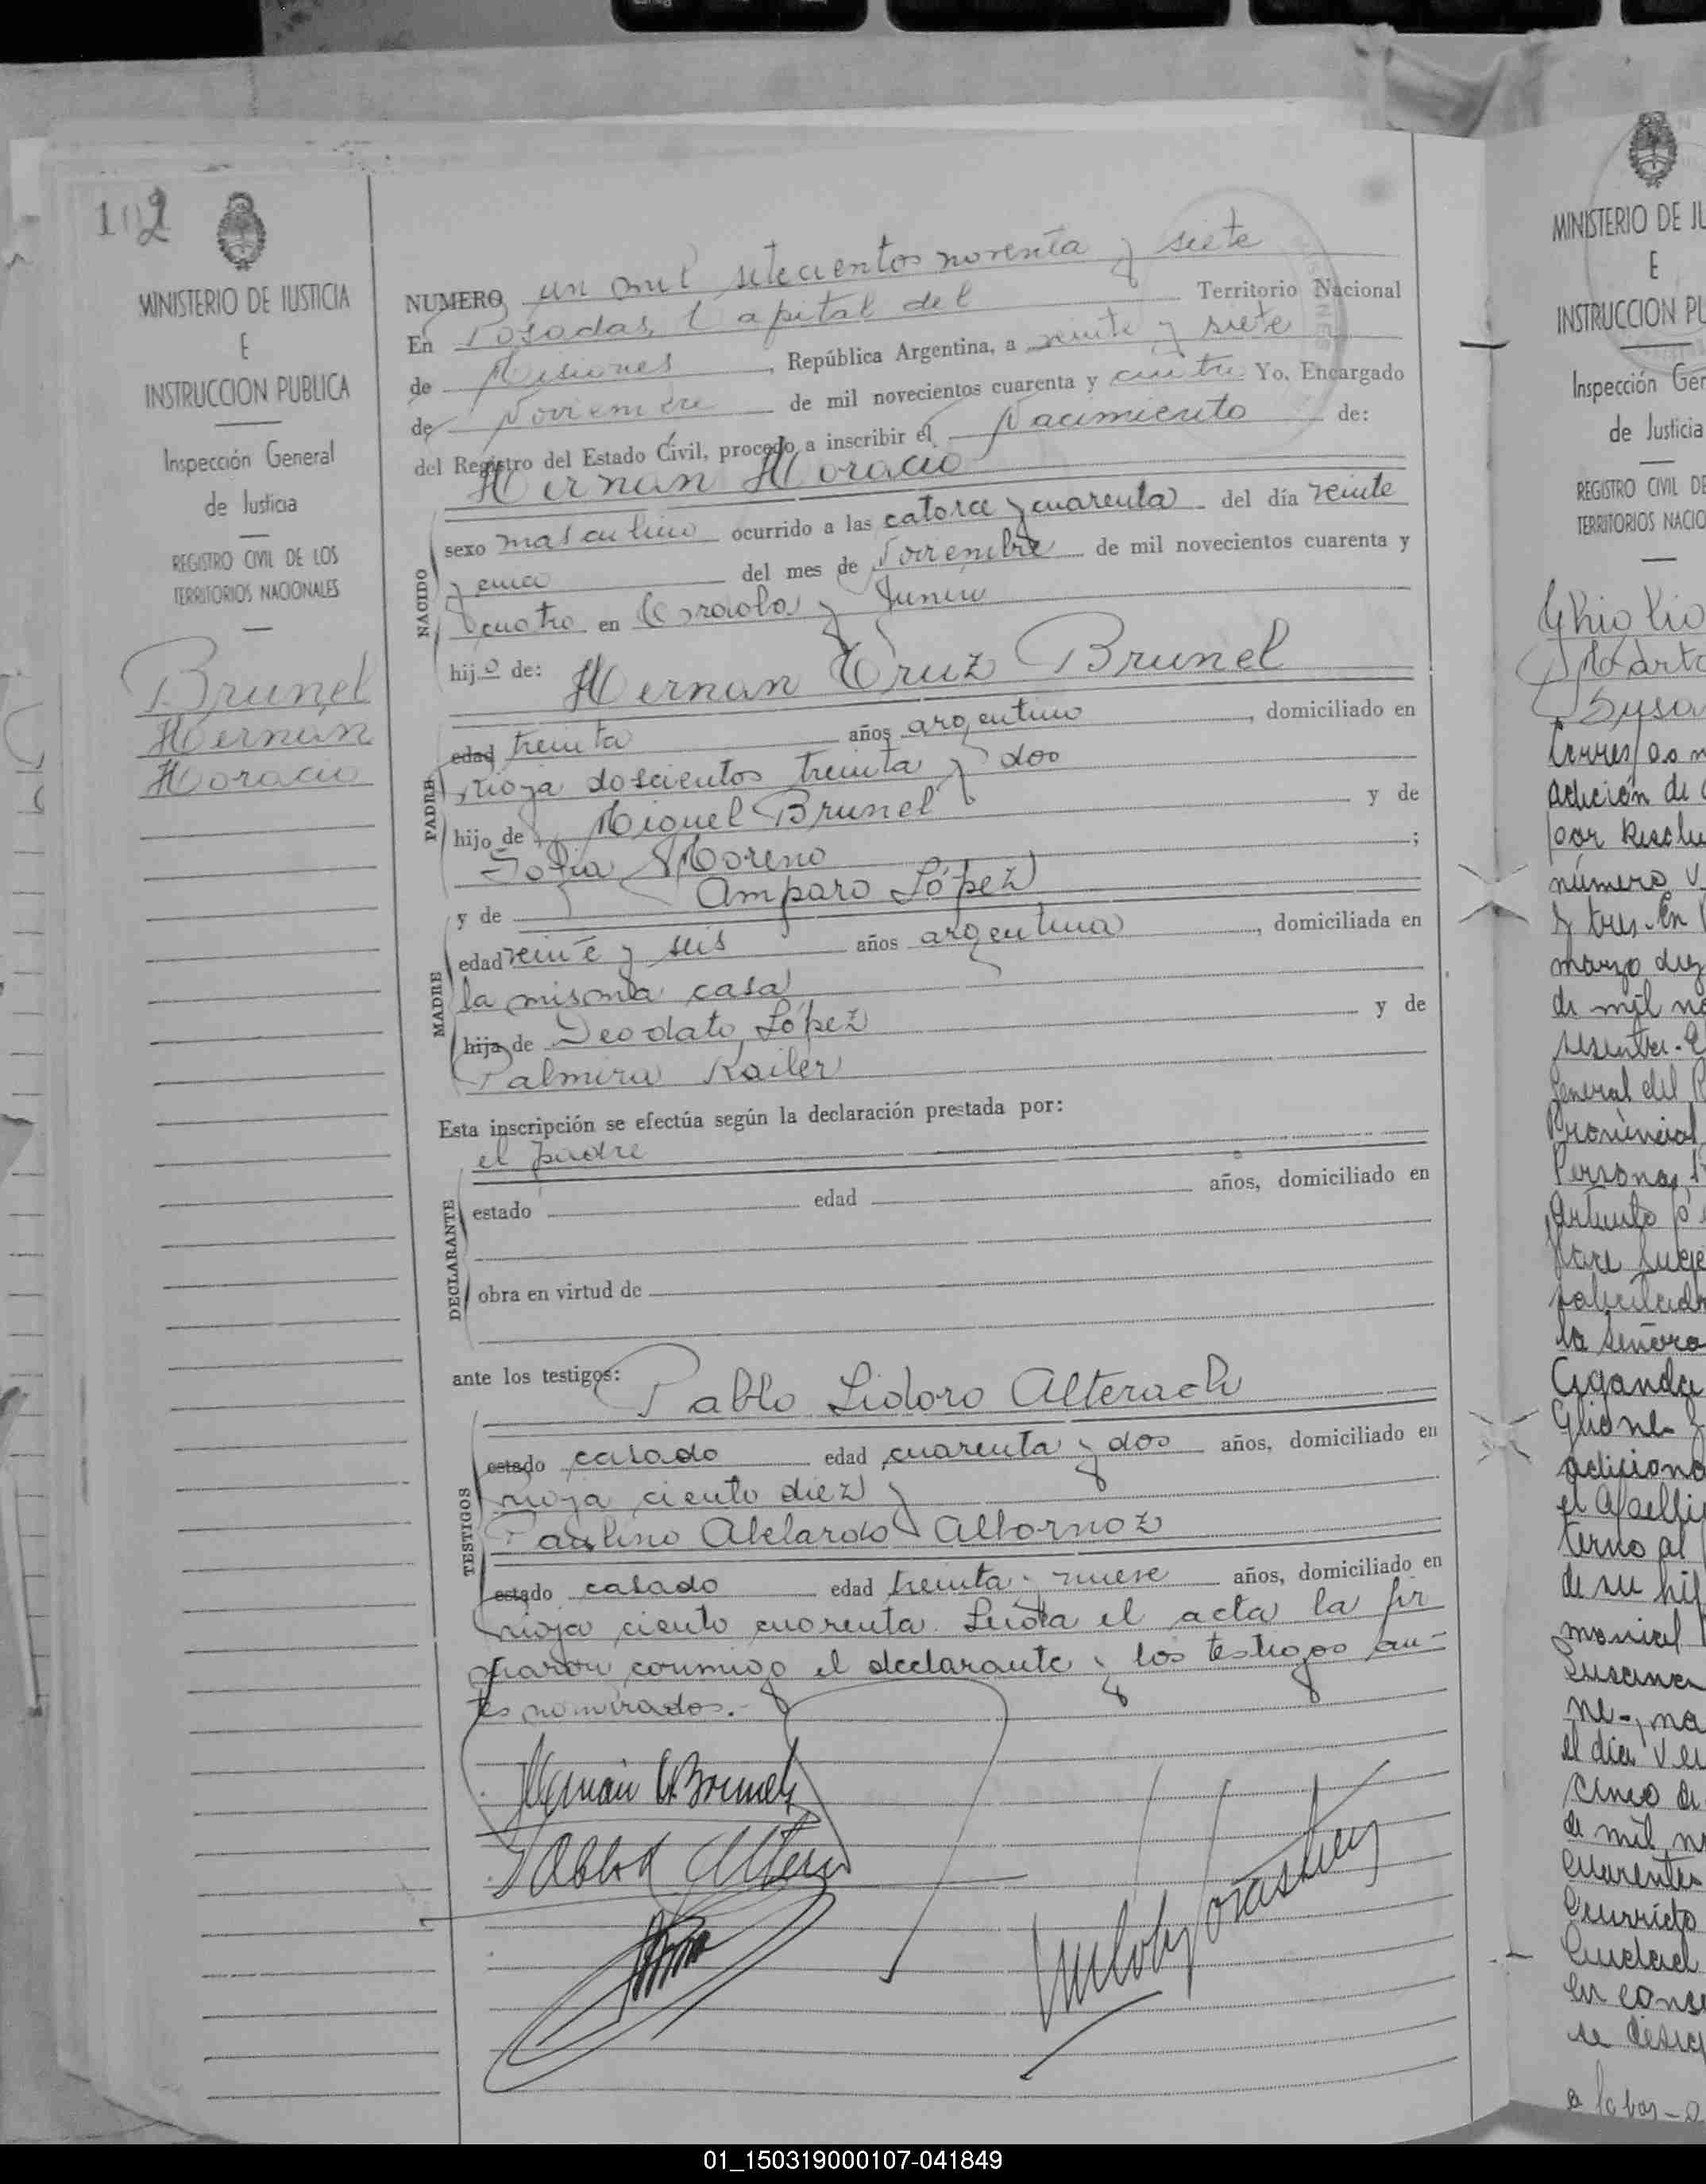 102
MINISTERIO DE JUSTICIA
E
INSTRUCCION PUBLICA
Inspección General
de Justicia
REGISTRO CIVIL DE LOS
TERRITORIOS NACIONALES
Brunel
Hernán
Horacio
NUMERO un mil setecientos noventa y siete
En Posadas, Capital del Territorio Nacional
de Misiones, República Argentina, a veinte y siete
de Noviembre de mil novecientos cuarenta y cuatro Yo, Encargado
del Registro del Estado Civil, procedo a inscribir el Nacimiento de:
Hernan Horacio
NACIDO
sexo masculino ocurrido a las catorce y cuarenta del día veinte
y cinco del mes de Noviembre de mil novecientos cuarenta y
cuatro en y Junin
hijo de: Hernan Cruz Brunel
PADRE
edad treinta años argentino, domiciliado en
rioja doscientos treinta y dos
hijo de Miguel Brunel y de
Sofia Moreno;
y de Amparo López
MADRE
edad veinte y seis años argentina, domiciliada en
la misma casa
hija de Deodato López y de
Palmira Kailer
Esta inscripción se efectúa según la declaración prestada por:
el padre
DECLARANTE
estado edad años, domiciliado en
obra en virtud de
ante los testigos: Pablo Lidoro Alterach
TESTIGOS
estado casado edad cuarenta y dos años, domiciliado en
rioja ciento diez y
Paulino Abelardo Albornoz
estado casado edad treinta y nueve años, domiciliado en
rioja ciento cuarenta. Leida el acta la fir
maron conmigo el declarante y los testigos an-
tes nombrados.-
Hernán C. Brunel
MINISTERIO DE JU
E
INSTRUCCION PU
Inspección Gen
de Justicia
REGISTRO CIVIL DE
TERRITORIOS NACIO
adición de
por
número
y tres. En
marzo
de mil no
General del
Provincial
Personas
la señora
adiciona
terno al
de su hij
el dia
cinco de
de mil n
01_150319000107-041849